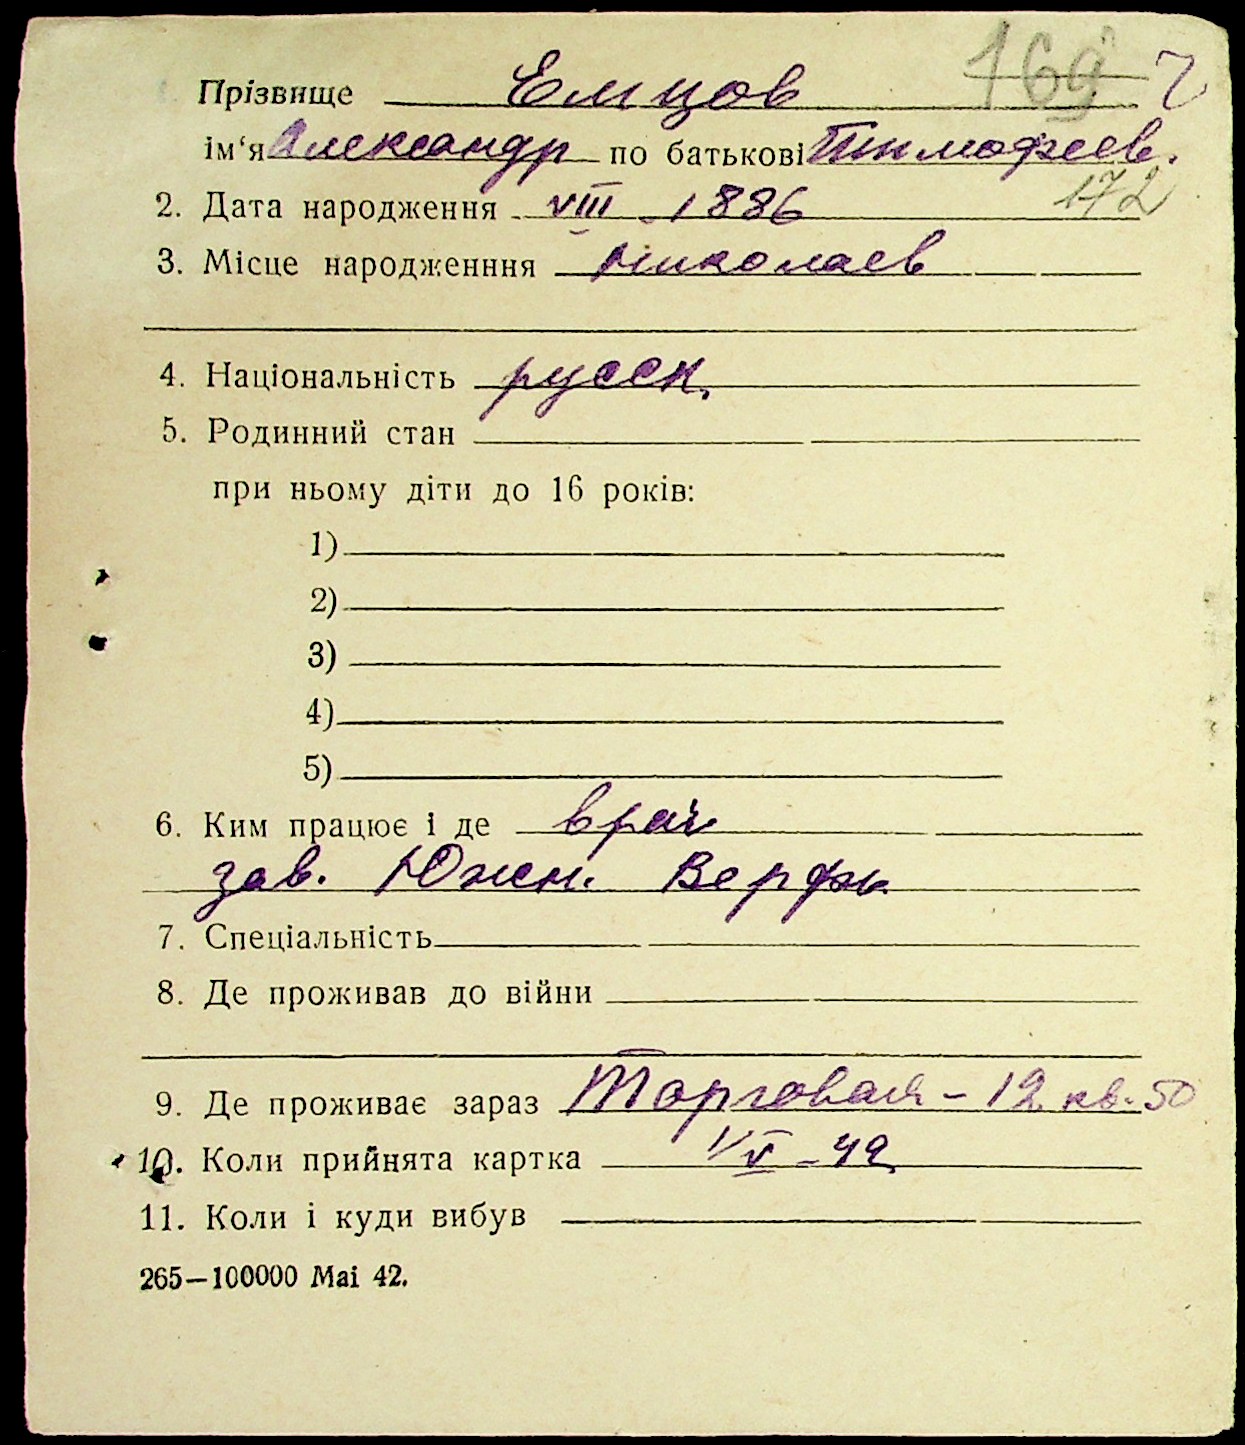 169 2
Прізвище Емцов
ім‘я Александр по батькові Тимофеев.
172
2. Дата народження VIII - 1886
3. Місце народженння Николаев
4. Національність русск.
5. Родинний стан
при ньому діти до 16 років:
1)
2)
3)
4)
5)
6. Ким працює і де врач
зав. Южн. Верфь
7. Спеціальність
8. Де проживав до війни
9. Де проживає зараз Торговая - 12 кв. 50
10. Коли прийнята картка 1/V - 42
11. Коли і куди вибув
265—100000 Mai 42.